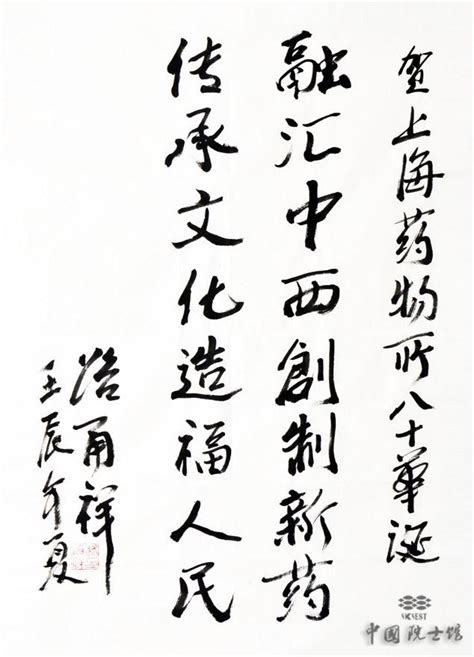 贺上海药物所八十華诞
融汇中西創制新药
传承文化造福人民
路甬祥
壬辰年夏
中國院士馆